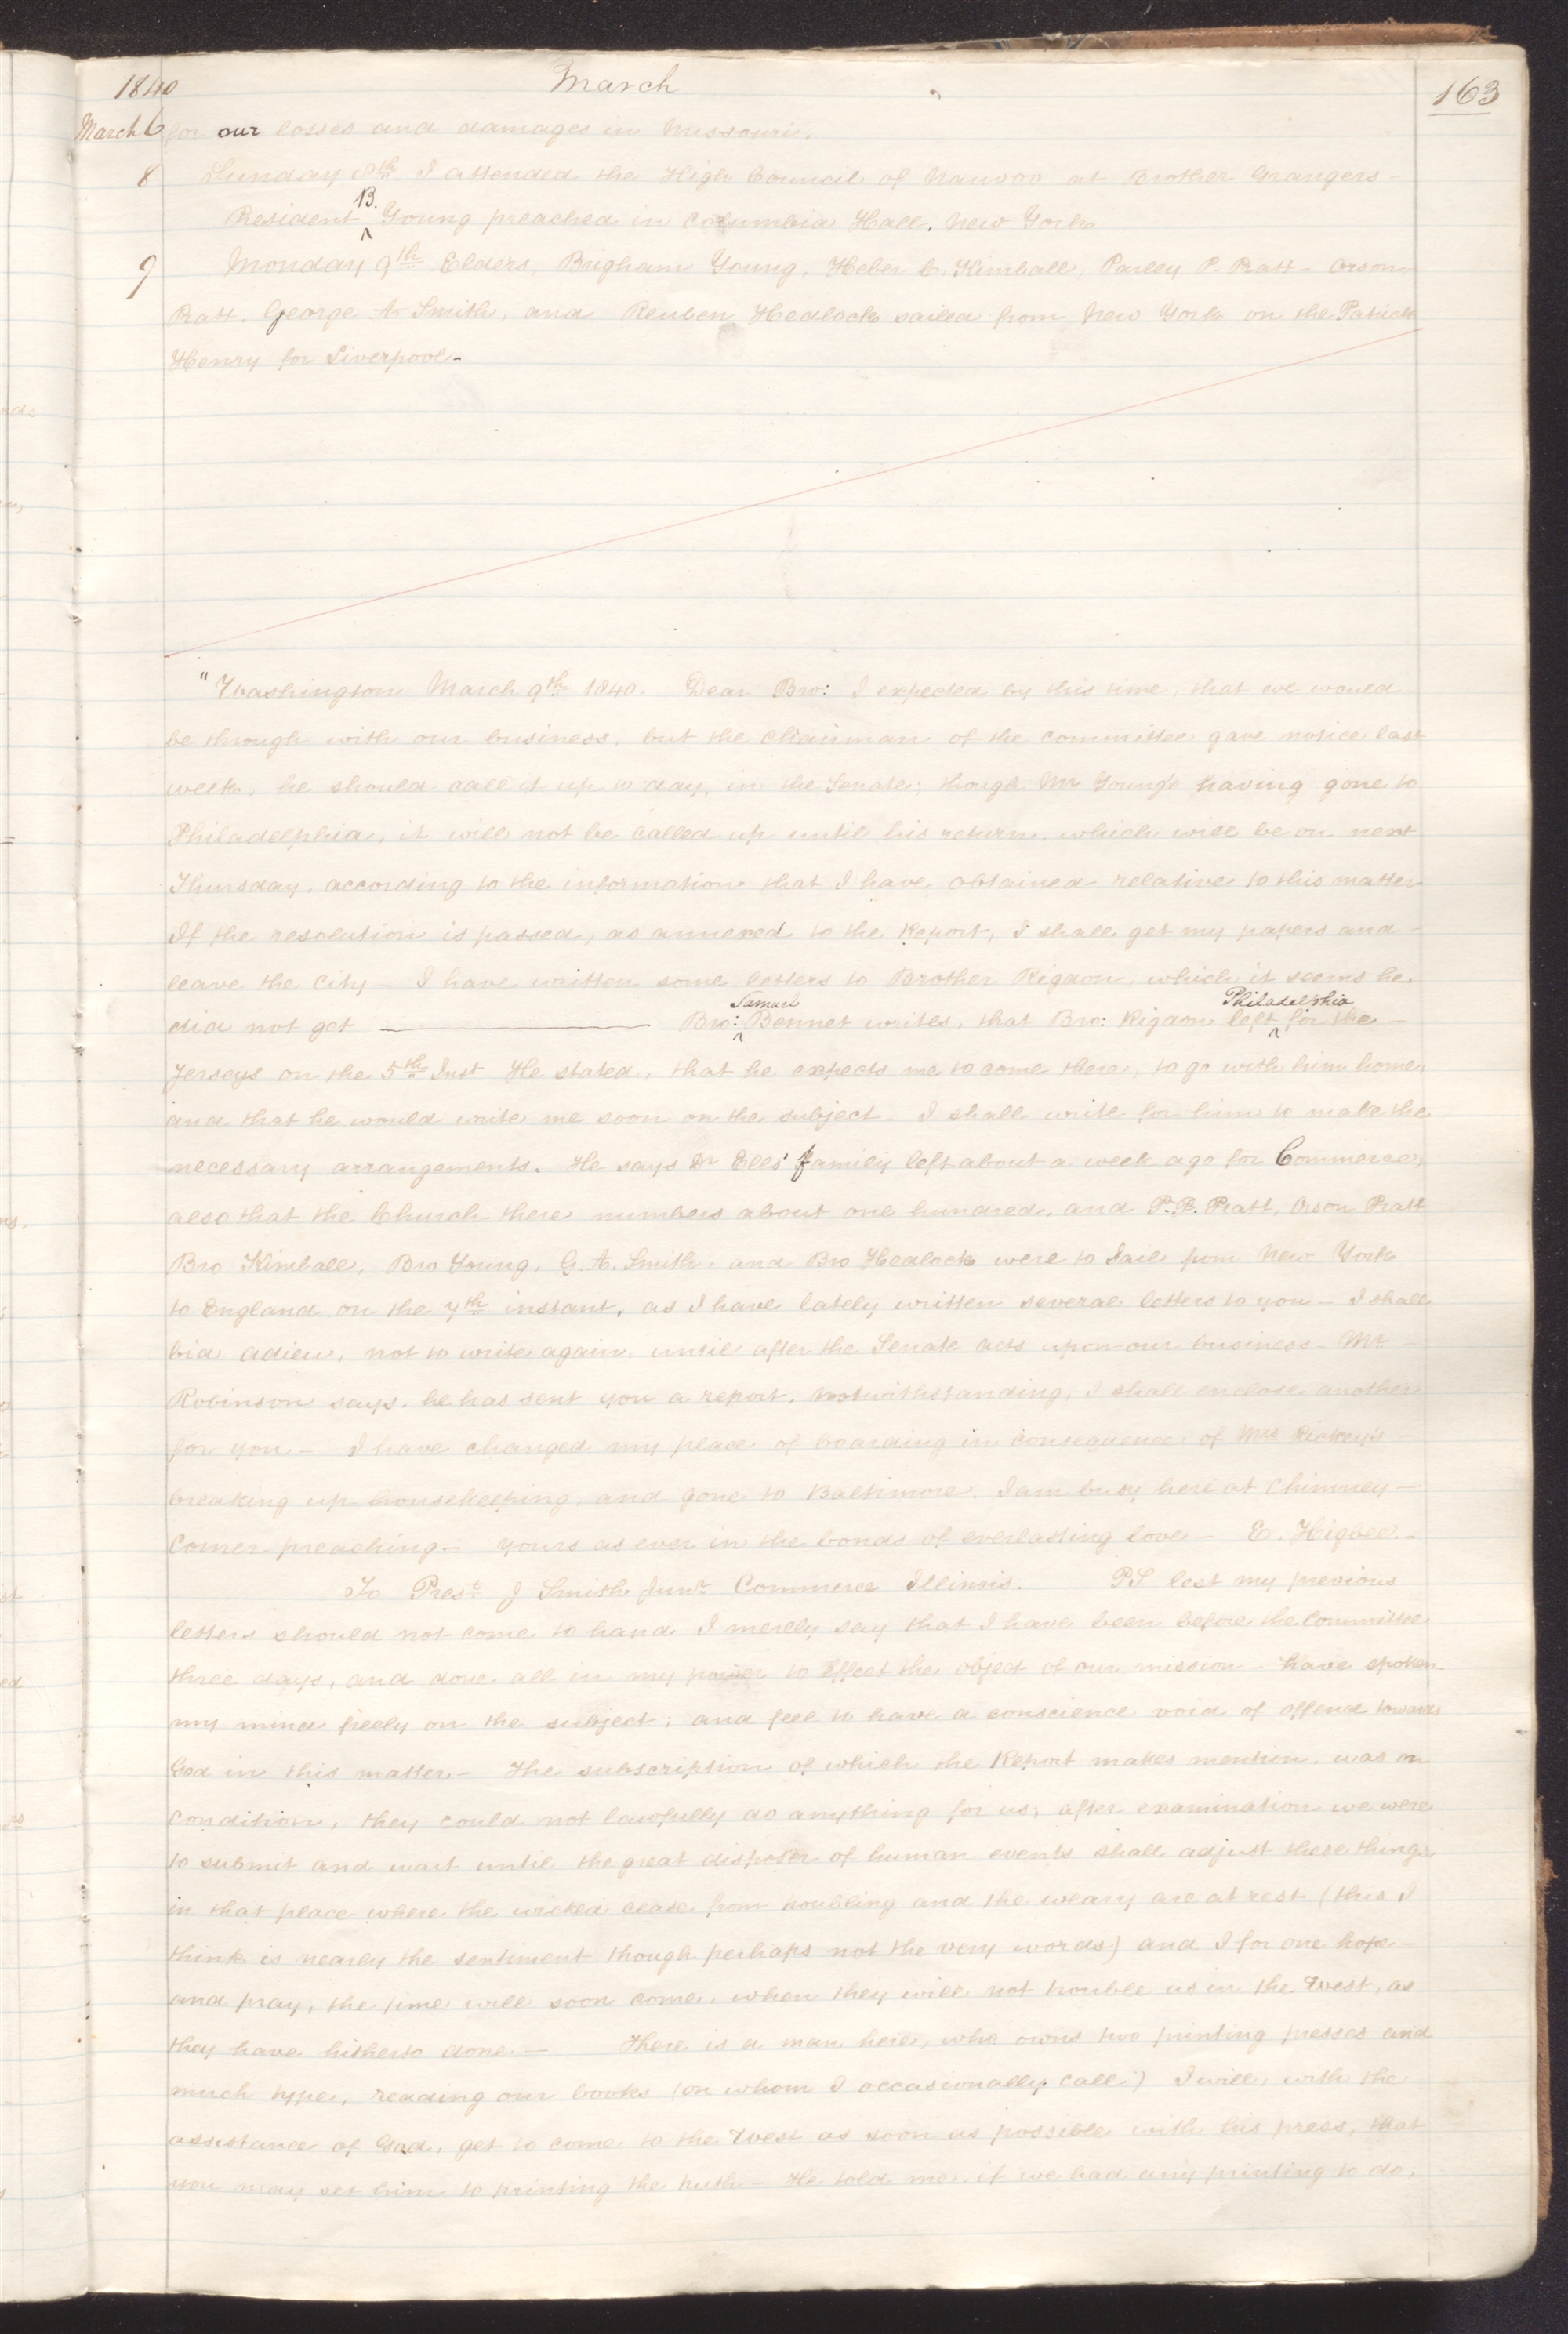 1840 March 163
March 6 for our losses and damages in Missouri.
8 Sunday 8th I attended the High Council of Nauvoo at Brother Grangers –
President B. Young preached in Columbia Hall, New York
9 Monday 9th Elders, Brigham Young, Heber C. Kimball, Parley P. Pratt – Orson
Pratt. George A Smith, and Reuben Hedlock sailed from New York on the Patrick
Henry for Liverpool –
"Washington March 9th 1840. Dear Bro: I expected by this time, that we would
be through with our business, but the chairman of the committee gave notice last
week, he should call it up to day, in the Senate; though Mr Young's having gone to
Philadelphia, it will not be called up until his return, which will be on next
Thursday, according to the information that I have obtained relative to this matter
If the resolution is passed, as annexed to the Report, I shall get my papers and –
leave the City – I have written some letters to Brother Rigdon, which it seems he
did not get ——— Bro: Samuel Bennet writes, that Bro: Rigdon left Philadelphia for the –
Jerseys on the 5th Inst He stated, that he expects me to come there, to go with him home,
and that he would write me soon on the subject – I shall write for him to make the
necessary arrangements. He says Dr Ells' family left about a week ago for Commerce;
also that the Church there numbers about one hundred, and P. P. Pratt, Orson Pratt
Bro Kimball, Bro Young, G. A. Smith, and Bro Hedlock were to sail from New York
to England on the 7th instant, as I have lately written several letters to you – I shall
bid adieu, not to write again, until after the Senate acts upon our business – Mr –
Robinson says, he has sent you a report, notwithstanding, I shall enclose another
for you – I have changed my place of boarding in consequence of Mrs Richey's –
breaking up housekeeping, and gone to Baltimore. I am busy here at Chimney –
Corner preaching – Yours as ever in the bonds of everlasting love – E. Higbee. –
To Prest J Smith Junr Commerce Illinois. PS lest my previous
letters should not come to hand I merely say that I have been before the Committee
three days, and done all in my power to effect the object of our mission – have spoken
my mind freely on the subject; and feel to have a conscience void of offend towards
God in this matter. – The subscription of which the Report makes mention, was on
condition, they could not lawfully do anything for us; after examination we were
to submit and wait until the great disposer of human events shall adjust these things
in that place where the wicked cease from troubling and the weary are at rest (this I
think is nearly the sentiment though perhaps not the very words) and I for one hope –
and pray, the time will soon come, when they will not trouble us in the West, as
they have hitherto done – There is a man here, who owns two printing presses and
much type, reading our books (on whom I occasionally call) I will, with the
assistance of God, get to come to the West as soon as possible with his press, that
you may set him to printing the truth – He told me, if we had any printing to do,